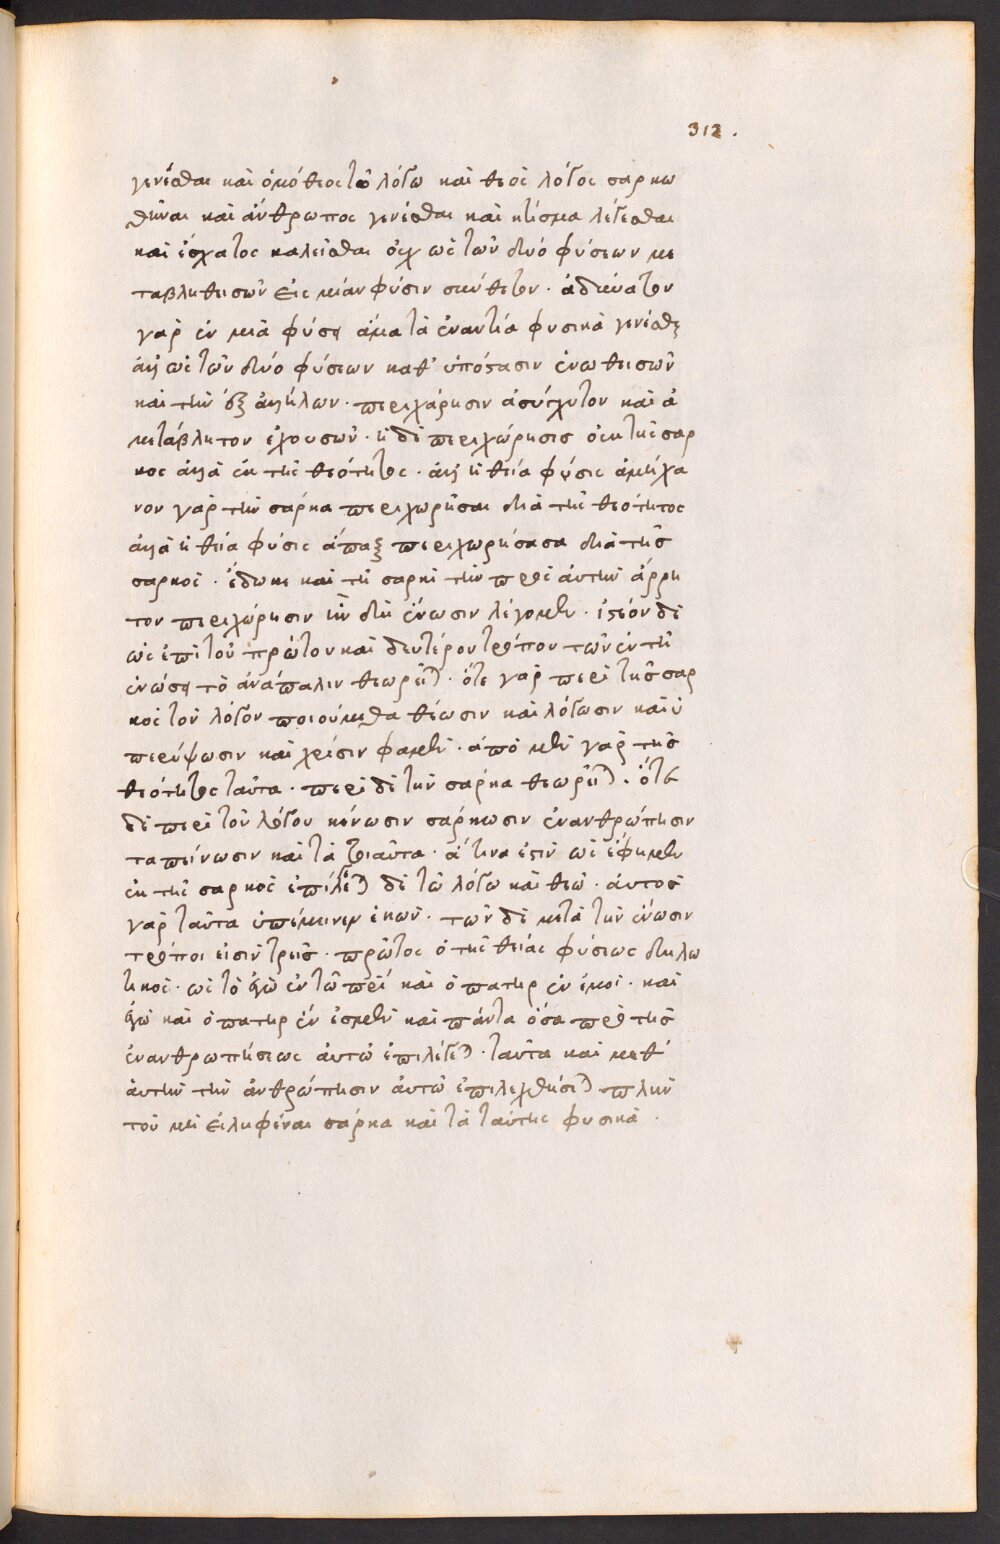 312.
γενέσθαι καὶ ὁμόθεος τῶ λόγω καὶ θεὸς λόγος σαρκω
θῆναι καὶ ἄνθρωπος γενέσθαι καὶ κτίσμα λέγεσθαι
καὶ ἔσχατος καλεῖσθαι οὐχ ὡς τῶν δύο φύσεων με
ταβληθεισῶν εἰς μίαν φύσιν σύνθετον. ἀδύνατον
γὰρ ἐν μιᾶ φύσει ἅμα τὰ ἐναντία φυσικὰ γενέσθαι
ἀλλ' ὡς τῶν δύο φύσεων καθ' ὑπόστασιν ἑνωθεισῶν
καὶ τὴν ἐξ ἀλλήλων. περιχώρησιν ἀσύγχυτον καὶ ἀ
μετάβλητον ἐχουσῶν. ἡ δὲ περιχώρησις οὐκ τῆς σαρ
κος ἀλλὰ ἐκ τῆς θεότητος. ἀλλ' ἡ θεία φύσις ἀμήχα
νον γὰρ τὴν σάρκα περιχωρῆσαι διὰ τῆς θεότητος
ἀλλὰ ἡ θεία φύσις ἅπαξ περιχωρήσασα διὰ τῆς
σαρκὸς. ἔδωκε καὶ τῆ σαρκὶ τὴν πρὸς ἀυτὴν ἄρρη
τον περιχώρησιν ἣν δὴ ἕνωσιν λέγομεν. ἰστέον δὲ
ὡς ἐπὶ τοῦ πρώτου καὶ δευτέρου τρόπου τῶν ἐν τῆ
ἑνώσει τὸ ἀνάπαλιν θεωρεῖται. ὅτε γὰρ περὶ τῆς σαρ
κὸς τὸν λόγον ποιούμεθα θέωσιν καὶ λόγωσιν καὶ ὑ
περύψωσιν καὶ χρίσιν φαμὲν. ἀπὸ μὲν γὰρ τῆς
θεότητος ταῦτα. περὶ δὲ τὴν σάρκα θεωρεῖται. ὅτε
δὲ περὶ τοῦ λόγου κένωσιν σάρκωσιν ἐνανθρώπησιν
ταπείνωσιν καὶ τὰ τοιαῦτα. ἅτινα ἐστὶν ὡς ἔφημεν
ἐκ τῆς σαρκὸς ἐπιλέγεται δὲ τῶ λόγω καὶ θεῶ. ἀυτὸς
γὰρ ταῦτα ὑπέμεινεν ἑκὼν. τῶν δὲ μετὰ τὴν ἕνωσιν
τρόποι εἰσὶν τρεῖς. πρῶτος ὁ τῆς θείας φύσεως δηλω
τικὸς. ὡς τὸ ἐγὼ ἐν τῶ πρὶ καὶ ὁ πατὴρ ἐν ἐμοὶ. καὶ
ἐγὼ καὶ ὁ πατὴρ ἕν ἐσμεν καὶ πάντα ὅσα πρὸ τῆς
ἐνανθρωπήσεως ἀυτῶ ἐπιλέγεται. ταῦτα καὶ μεθ'
ἀυτὴν τὴν ἀνθρώπησιν ἀυτῶ ἐπιλεχθήσεται πλὴν
τοῦ μὴ εἰληφέναι σάρκα καὶ τὰ ταύτης φυσικὰ.